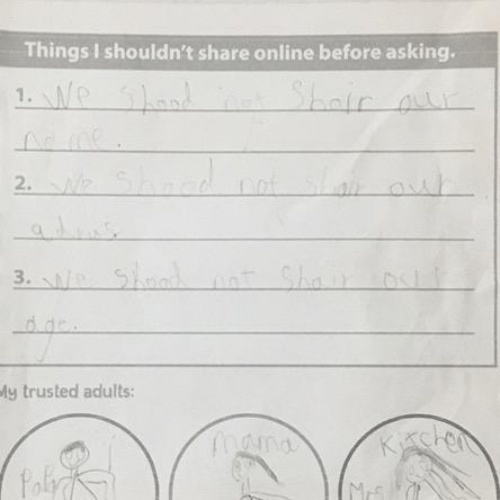 Things I shouldn't share online before asking.
1. We shood not Shair our
name.
2. We Shood not shair our
3. We Shood not Shair our
age.
My trusted adults:
mama
Kitchen